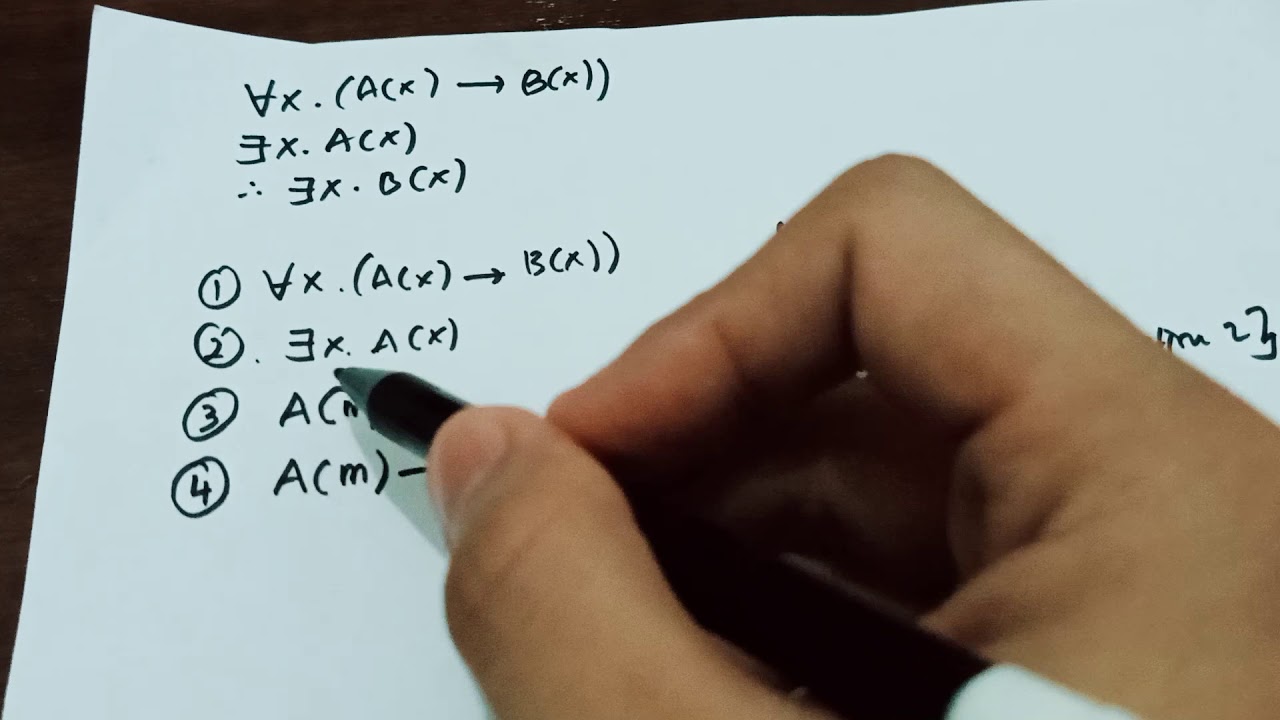 ∀x. (A(x) → B(x))
∃x. A(x)
∴ ∃x. B(x)
① ∀x. (A(x) → B(x))
②. ∃x. A(x)
③ A(
④ A(m) –
2}